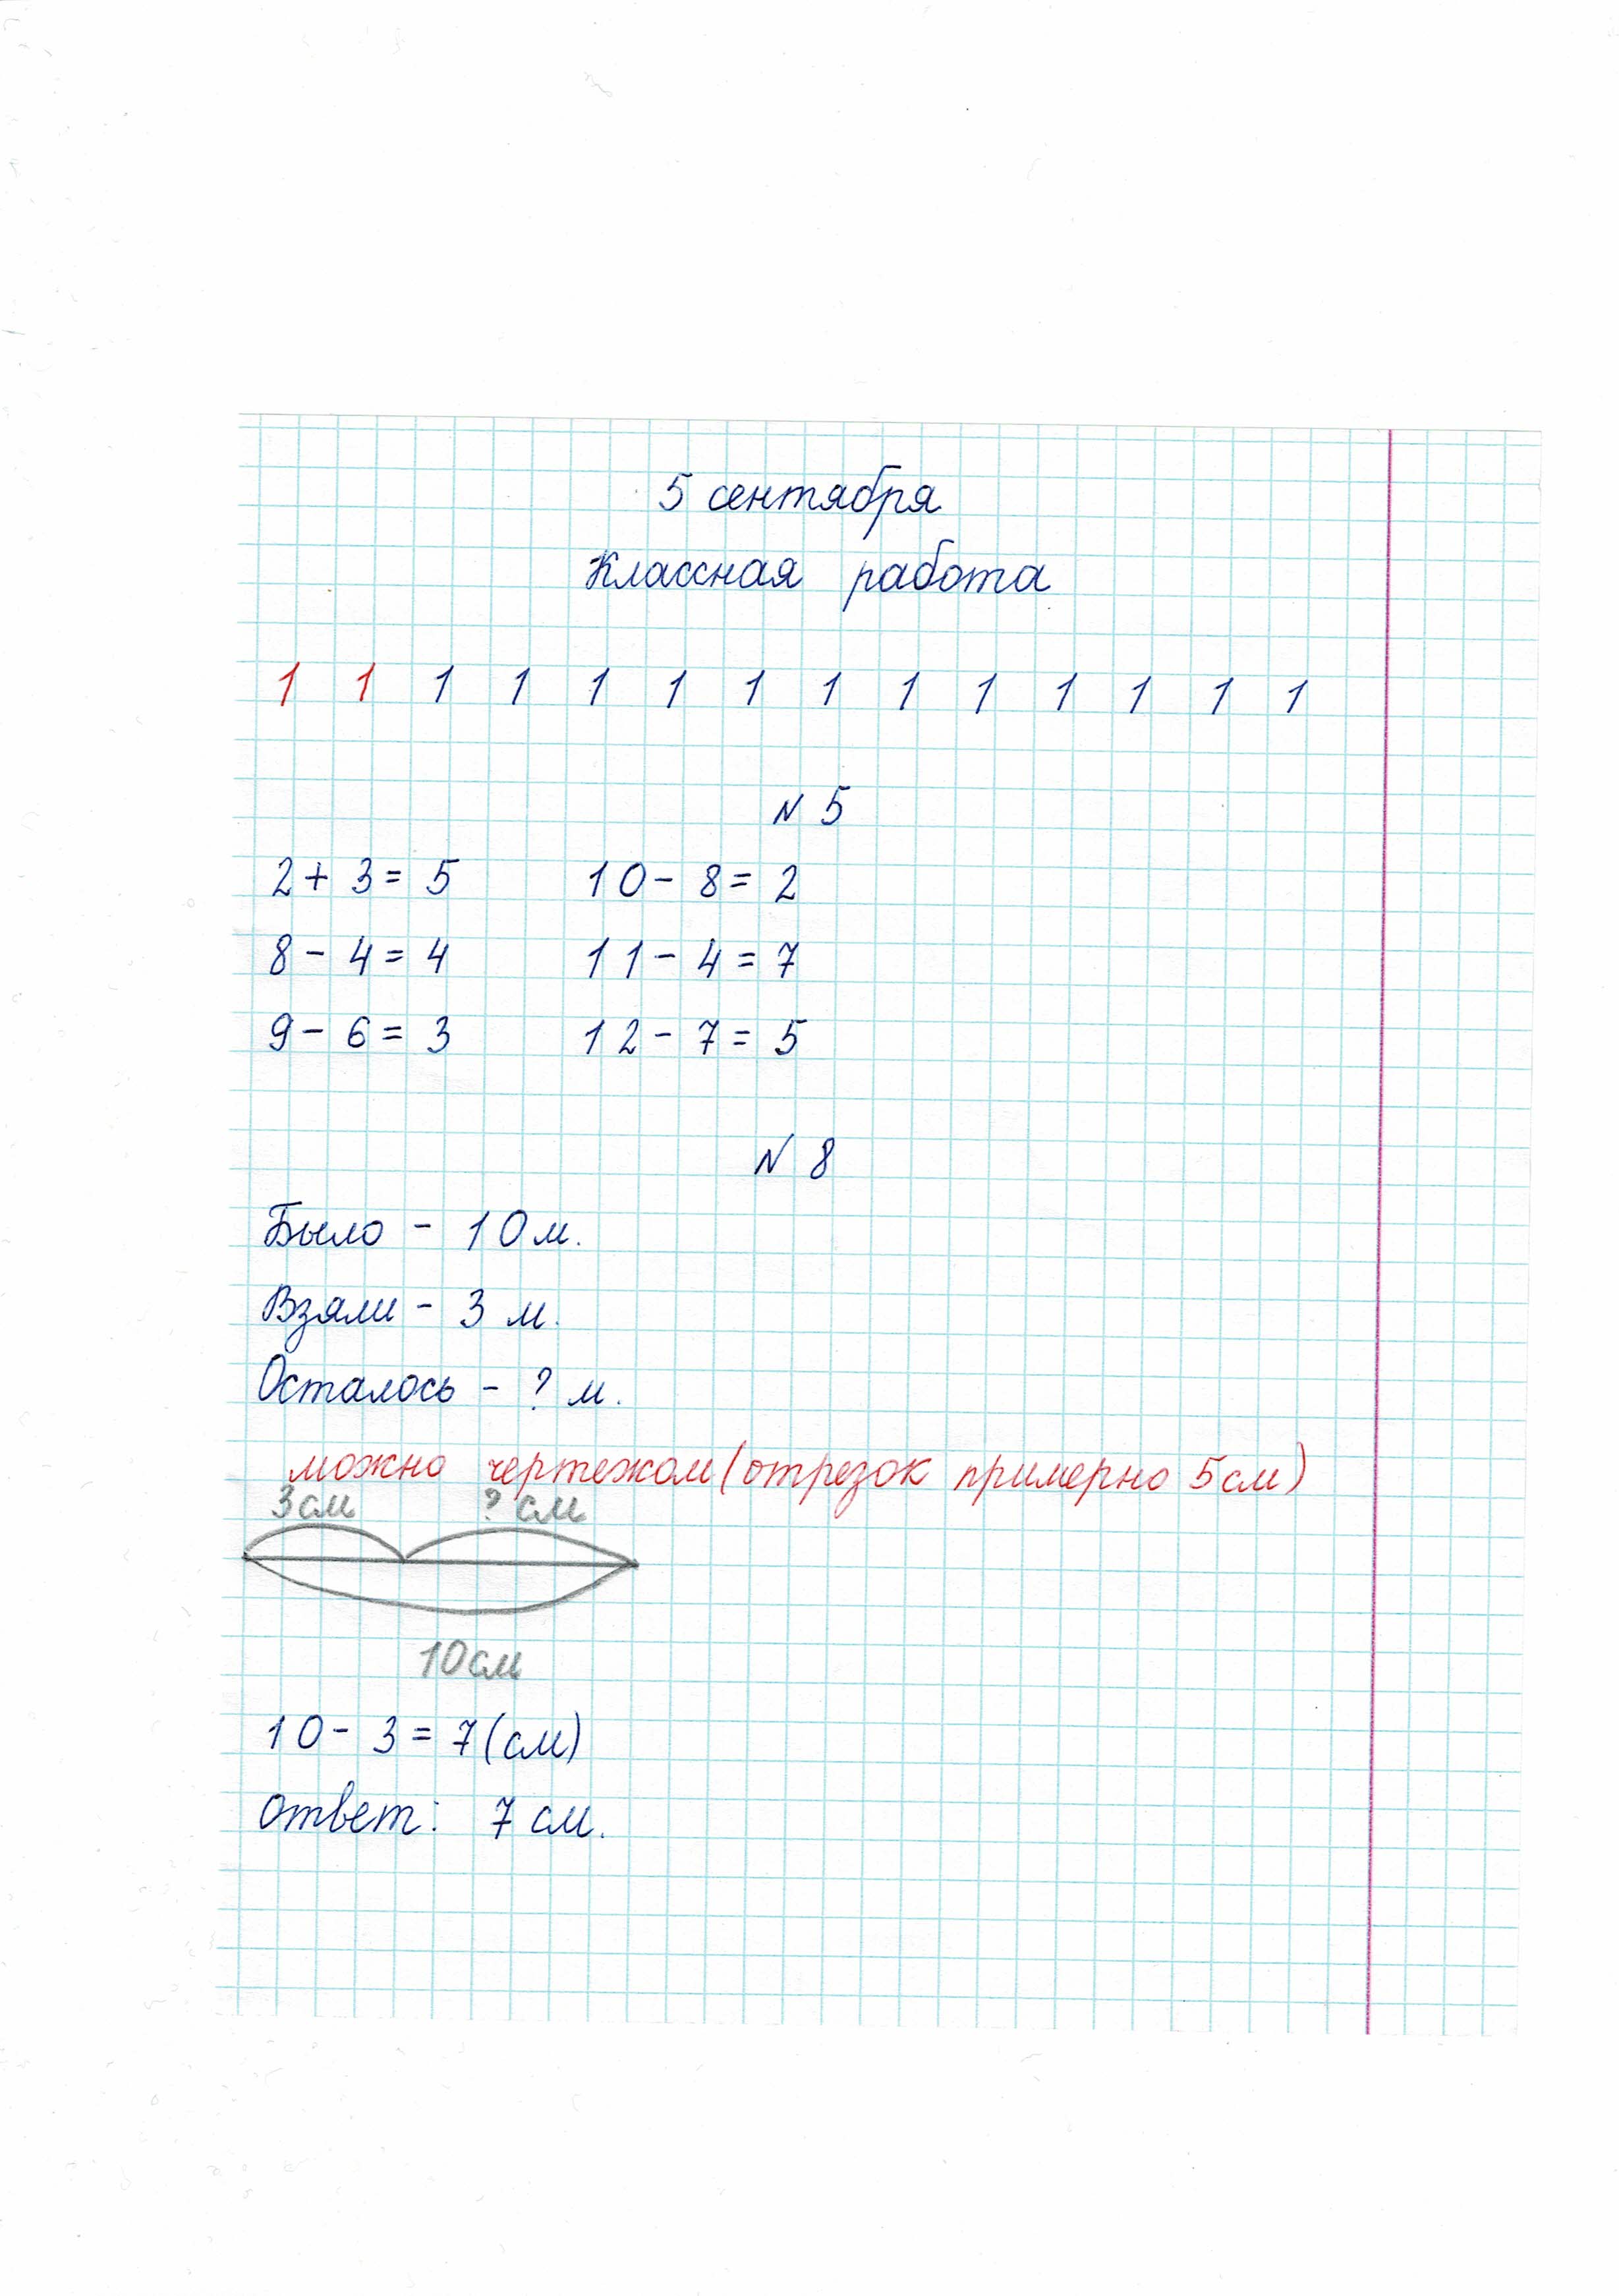 5 сентября
Классная работа
1 1 1 1 1 1 1 1 1 1 1 1 1 1
N 5
2 + 3 = 5 10 - 8 = 2
8 - 4 = 4 11 - 4 = 7
9 - 6 = 3 12 - 7 = 5
N 8
Было - 10 м.
Взяли - 3 м.
Осталось - ? м.
можно чертежом (отрезок примерно 5 см)
3 см ? см
10 см
10 - 3 = 7 (см)
ответ: 7 см.